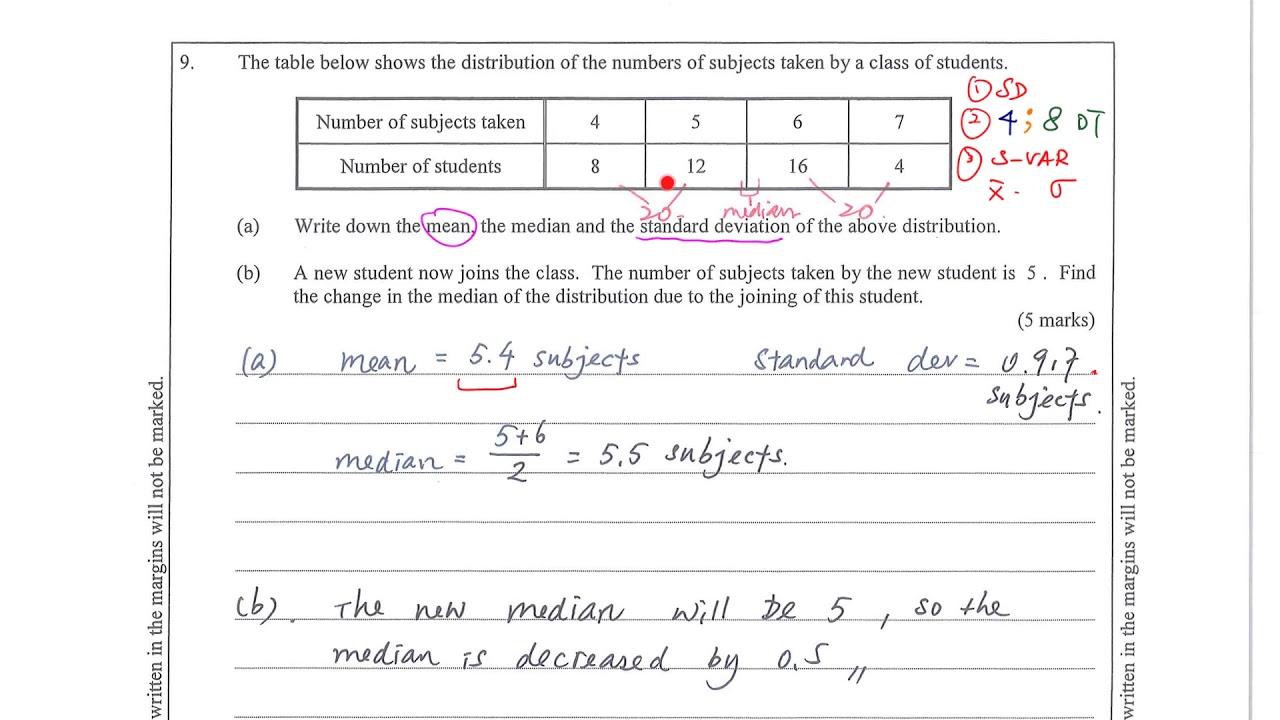 9. The table below shows the distribution of the numbers of subjects taken by a class of students.
① SD
Number of subjects taken 4 5 6 7
② 4 ; 8 DT
Number of students 8 12 16 4
③ S-VAR
x̄ . σ
20. median 20.
(a) Write down the mean, the median and the standard deviation of the above distribution.
(b) A new student now joins the class. The number of subjects taken by the new student is 5 . Find
the change in the median of the distribution due to the joining of this student.
(5 marks)
(a) mean = 5.4 subjects standard dev = 0.917
subjects.
median = 5+6/2 = 5.5 subjects.
(b). The new median will be 5 , so the
median is decreased by 0.5 〃
written in the margins will not be marked.
written in the margins will not be marked.